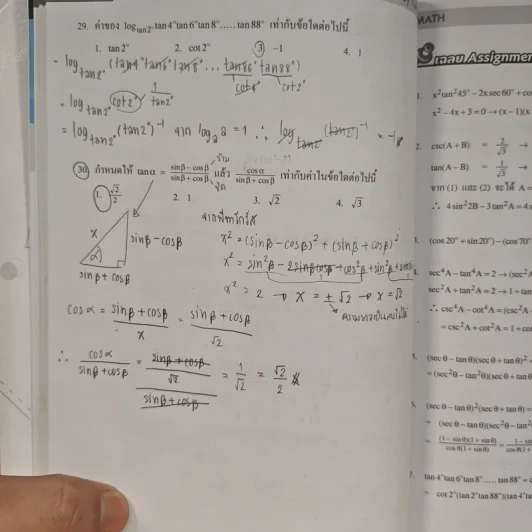 29. ค่าของ log_{tan2°} tan4°tan6°tan8°.....tan88° เท่ากับข้อใดต่อไปนี้
1. tan2° 2. cot2° 3. -1 4. 1
= log_{tan2°} (tan4° tan6° tan8° ... tan86° tan88°)
cot4° cot2°
= log_{tan2°} cot2° 1/tan2°
= log_{tan2°} (tan2°)⁻¹ จาก log_a a = 1 ∴ log_{tan2°} (tan2°)⁻¹ = -1
30. กำหนดให้ tanα = (sinβ - cosβ)/(sinβ + cosβ) แล้ว cosα/(sinβ + cosβ) เท่ากับค่าในข้อใดต่อไปนี้
1. √2/2 2. 1 3. √2 4. √3
x sinβ - cosβ
α
sinβ + cosβ
x² = (sinβ - cosβ)² + (sinβ + cosβ)²
x² = 2 → x = ±√2 → x = √2
cosα = (sinβ + cosβ)/x = (sinβ + cosβ)/√2
∴ cosα/(sinβ + cosβ) = ((sinβ + cosβ)/√2)/(sinβ + cosβ) = 1/√2 = √2/2
MATH
เฉลย Assignmen
1. x²tan²45° - 2x sec60° + co
x² - 4x + 3 = 0 → (x - 1)(x
2. csc(A + B) = 2/√3 →
tan(A - B) = 1/√3 →
จาก (1) และ (2) จะได้ A =
∴ 4 sin²2B - 3tan²A = 4
3. (cos20° + sin20°) - (cos70°
4. sec⁴A - tan⁴A = 2 → (sec²A
sec²A + tan²A = 2 → 1 + tan
∴ csc⁴A - cot⁴A = (csc²A -
= csc²A + cot²A = 1 + co
5. (secθ - tanθ)(secθ + tanθ)
= (sec²θ - tan²θ)(secθ + tan
(secθ - tanθ)²(secθ + tanθ) =
= (secθ - tanθ)(sec²θ - tan²
= (1 - sinθ)(1 + sinθ)/cosθ(1 + sinθ) = 1 - sin/cosθ(1 +
7. tan4°tan6°tan8°.....tan88° =
= cot2°(tan2°tan88°)(tan4°ta